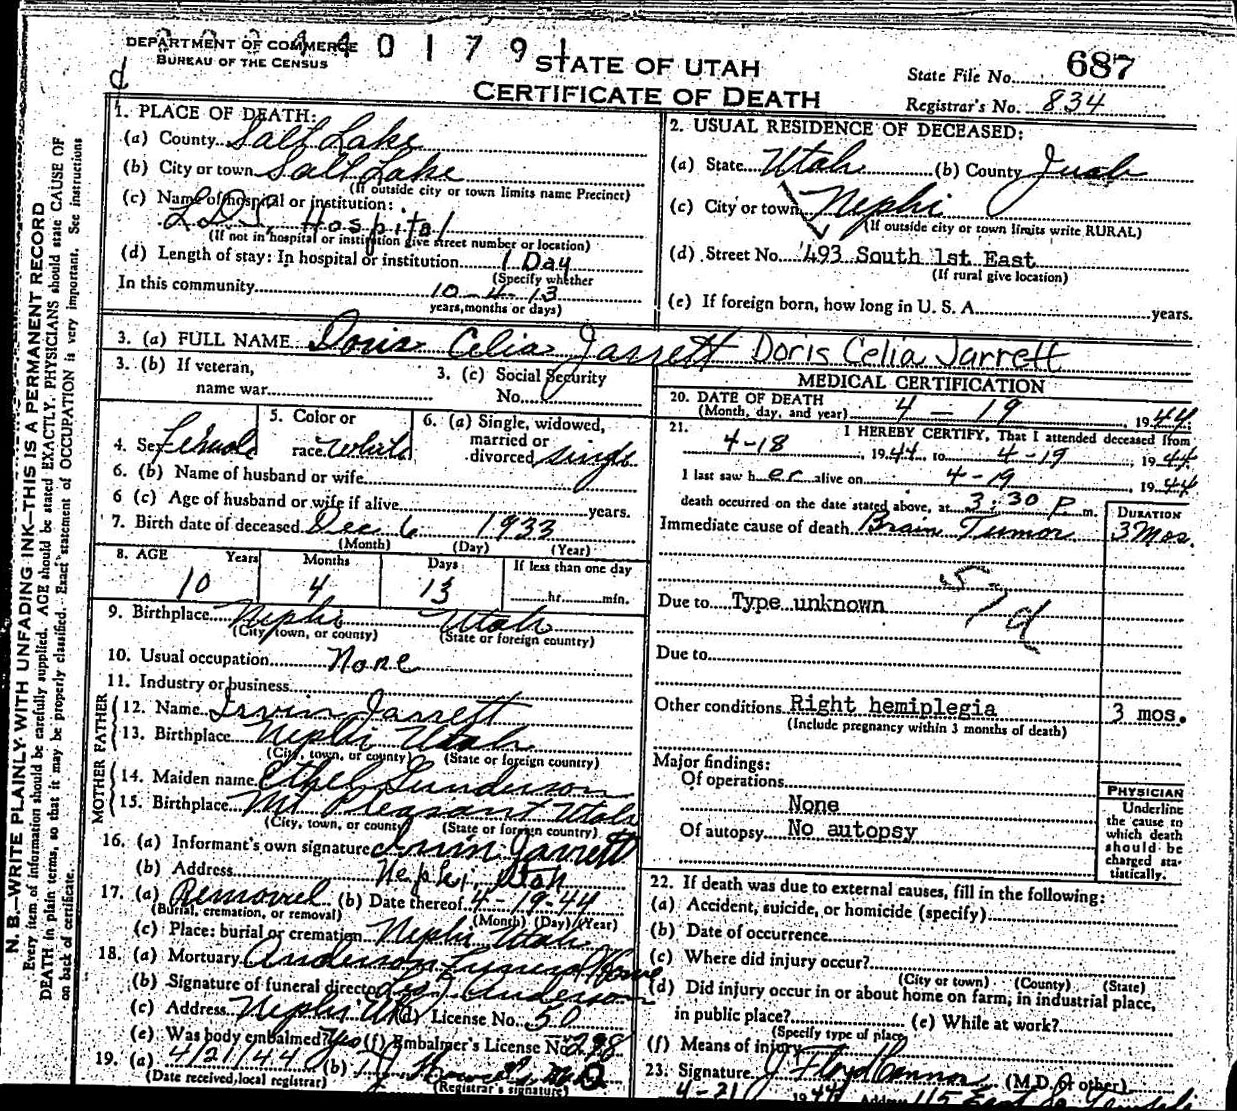 DEPARTMENT OF COMMERCE
BUREAU OF THE CENSUS
4 0 1 7 9 1
STATE OF UTAH
CERTIFICATE OF DEATH
State File No. 687
Registrar's No. 834
d
N. B.—WRITE PLAINLY, WITH UNFADING INK—THIS IS A PERMANENT RECORD
Every item of information should be carefully supplied. AGE should be stated EXACTLY. PHYSICIANS should state CAUSE OF
DEATH in plain terms, so that it may be properly classified. Exact statement of OCCUPATION is very important. See instructions
on back of certificate.
1. PLACE OF DEATH:
(a) County Salt Lake
(b) City or town Salt Lake
(If outside city or town limits name Precinct)
(c) Name of hospital or institution:
L.D.S. Hospital
(If not in hospital or institution give street number or location)
(d) Length of stay: In hospital or institution 1 Day
(Specify whether
In this community 10-4-13
years, months or days)
2. USUAL RESIDENCE OF DECEASED:
(a) State Utah (b) County Juab
(c) City or town Nephi
(If outside city or town limits write RURAL)
(d) Street No. 493 South 1st East
(If rural give location)
(e) If foreign born, how long in U. S. A. years.
3. (a) FULL NAME Doris Celia Jarrett Doris Celia Jarrett
3. (b) If veteran,
name war
3. (c) Social Security
No.
4. Sex Female
5. Color or
race White
6. (a) Single, widowed,
married or
divorced single
6. (b) Name of husband or wife
6 (c) Age of husband or wife if alive years.
7. Birth date of deceased Dec 6 1933
(Month) (Day) (Year)
8. AGE Years Months Days If less than one day
10 4 13 hr. min.
9. Birthplace Nephi Utah
(City, town, or county) (State or foreign country)
10. Usual occupation None
11. Industry or business
FATHER
12. Name Irvin Jarrett
13. Birthplace Nephi Utah
(City, town, or county) (State or foreign country)
MOTHER
14. Maiden name Ethel Gunderson
15. Birthplace Mt Pleasant Utah
(City, town, or county) (State or foreign country)
16. (a) Informant's own signature Irvin Jarrett
(b) Address Nephi, Utah
17. (a) Removal (b) Date thereof 4-19-44
(Burial, cremation, or removal) (Month) (Day) (Year)
(c) Place: burial or cremation Nephi Utah
18. (a) Mortuary Anderson Funeral Home
(b) Signature of funeral director Anderson
(c) Address Nephi Ut (d) License No. 50
(e) Was body embalmed? Yes (f) Embalmer's License No. 298
19. (a) 4/21/44 (b) M.D.
(Date received, local registrar) (Registrar's signature)
MEDICAL CERTIFICATION
20. DATE OF DEATH
(Month, day, and year) 4 - 19, 1944
21. I HEREBY CERTIFY, That I attended deceased from
4-18, 1944, to 4-19, 1944.
I last saw her alive on 4-19, 1944
death occurred on the date stated above, at 3:30 P m.
DURATION
Immediate cause of death Brain Tumor 3 Mos.
Due to Type unknown
57d
Due to
Other conditions Right hemiplegia 3 mos.
(Include pregnancy within 3 months of death)
Major findings:
Of operations
None
Of autopsy No autopsy
PHYSICIAN
Underline
the cause to
which death
should be
charged sta-
tistically.
22. If death was due to external causes, fill in the following:
(a) Accident, suicide, or homicide (specify)
(b) Date of occurrence
(c) Where did injury occur?
(City or town) (County) (State)
(d) Did injury occur in or about home on farm, in industrial place,
in public place? (e) While at work?
(Specify type of place)
(f) Means of injury
23. Signature J Floyd Cannon (M.D. or other)
4-21 1944 Address 115 East So. Temple